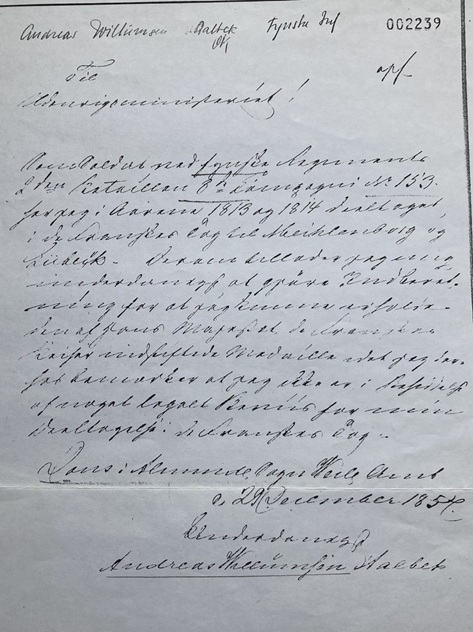 Andreas Willumsen Aalbek Fynske Inf
002239
Til
Udenrigsministeriet!
Som Soldat ved fynske Regiments
2den Bataillon 8de Compagni No 153
har jeg i Aarene 1813 og 1814 deeltaget
i de Franskes Tog til Mecklenborg og
Lübek. Derom tillader jeg mig
underdanigst at gjöre Indberet-
ning for at jeg kunne erholde
den af Hans Majestæt de Franskes
Keiser indstiftede Medaille idet jeg der-
hos bemærker at jeg ikke er i Besiddelse
af noget legalt Beviis for min
Deeltagelse i de Franskes Tog.
Dons i Alminde Sogn Veile Amt
d. 29 December 1857.
Underdanigst
Andreas Willumsen Aalbek